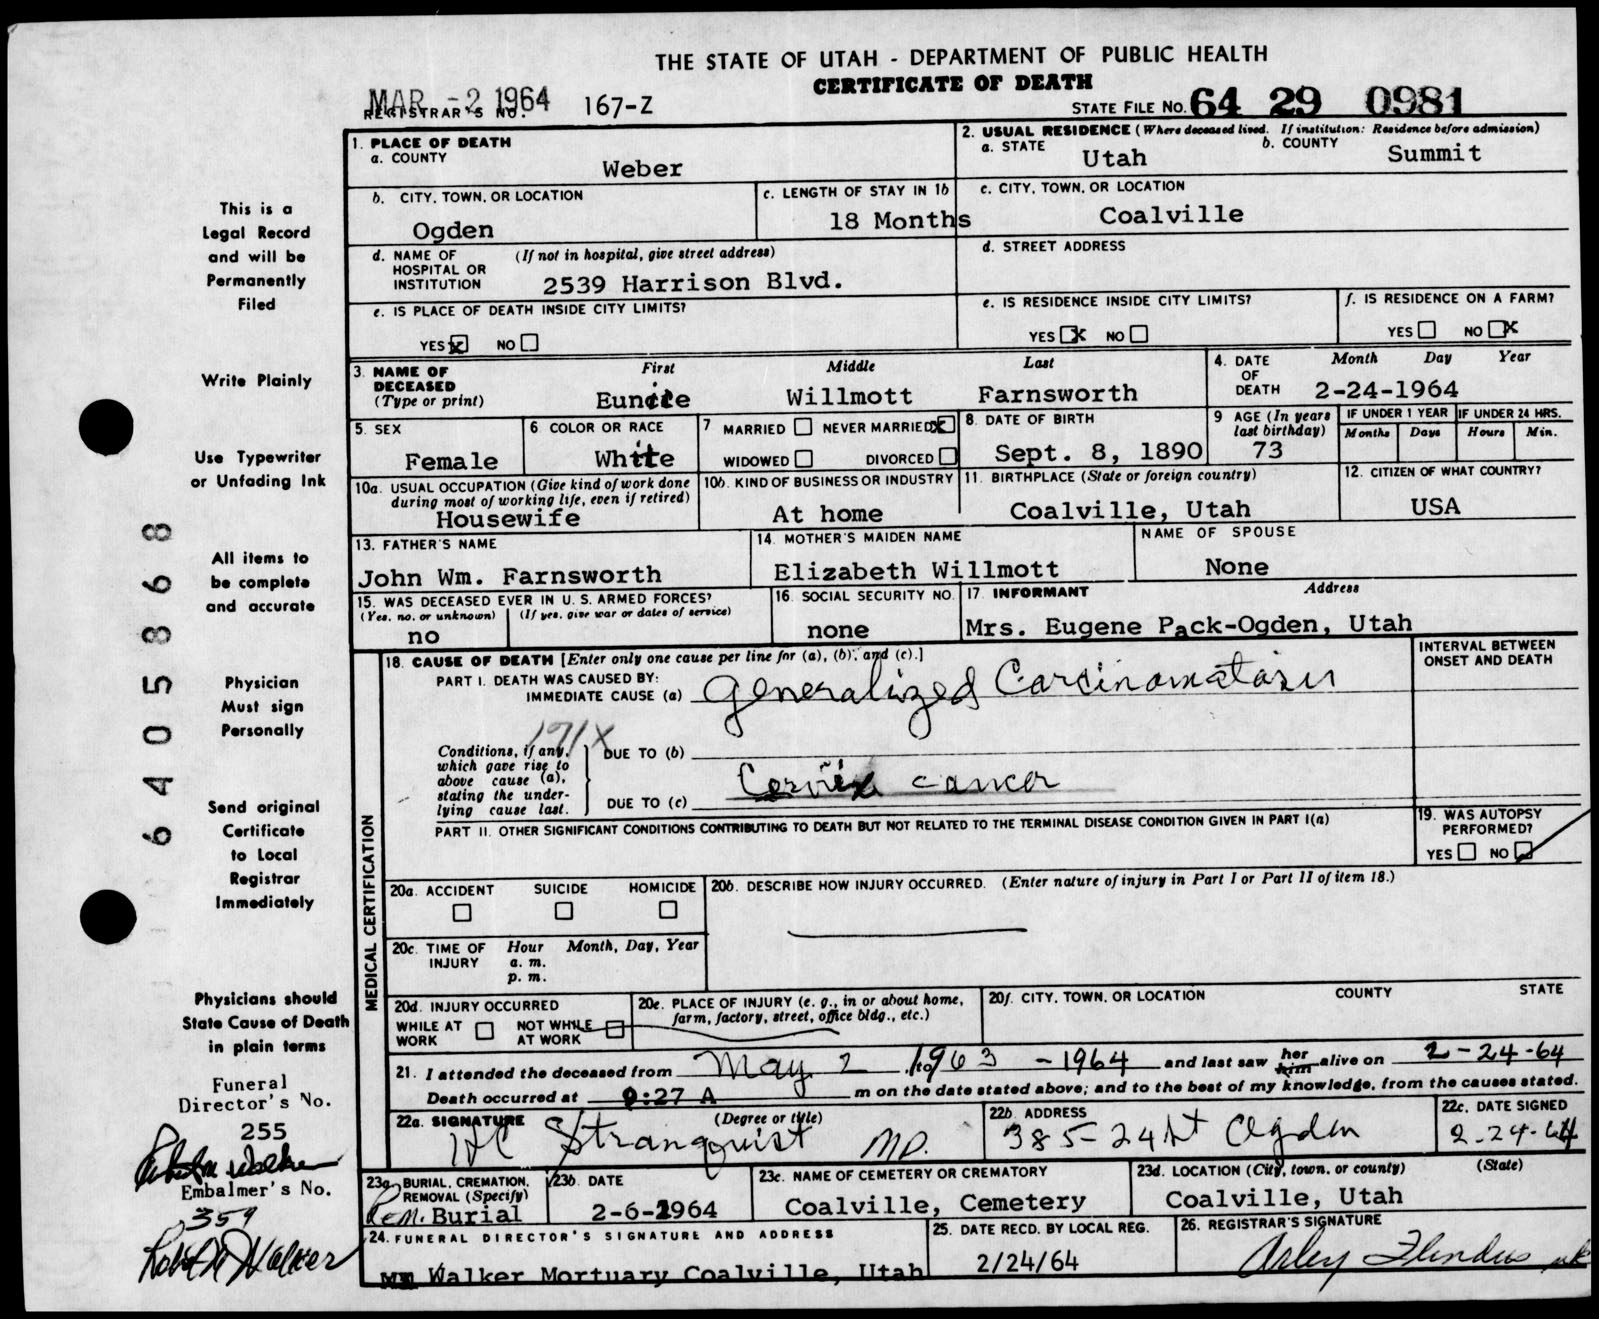 THE STATE OF UTAH - DEPARTMENT OF PUBLIC HEALTH
CERTIFICATE OF DEATH
MAR -2 1964
REGISTRAR'S NO. 167-Z
STATE FILE NO. 64 29 0981
This is a
Legal Record
and will be
Permanently
Filed
Write Plainly
Use Typewriter
or Unfading Ink
All items to
be complete
and accurate
Physician
Must sign
Personally
Send original
Certificate
to Local
Registrar
Immediately
Physicians should
State Cause of Death
in plain terms
Funeral
Director's No.
255
Embalmer's No.
359
64058868
1. PLACE OF DEATH
a. COUNTY
Weber
2. USUAL RESIDENCE (Where deceased lived. If institution: Residence before admission)
a. STATE Utah b. COUNTY Summit
b. CITY, TOWN, OR LOCATION
Ogden
c. LENGTH OF STAY IN 1b
18 Months
c. CITY, TOWN, OR LOCATION
Coalville
d. NAME OF HOSPITAL OR INSTITUTION (If not in hospital, give street address)
2539 Harrison Blvd.
d. STREET ADDRESS
e. IS PLACE OF DEATH INSIDE CITY LIMITS?
YES X NO
e. IS RESIDENCE INSIDE CITY LIMITS?
YES X NO
f. IS RESIDENCE ON A FARM?
YES NO X
3. NAME OF DECEASED (Type or print)
First Middle Last
Eunice Willmott Farnsworth
4. DATE OF DEATH Month Day Year
2-24-1964
5. SEX
Female
6 COLOR OR RACE
White
7 MARRIED NEVER MARRIED X
WIDOWED DIVORCED
8. DATE OF BIRTH
Sept. 8, 1890
9 AGE (In years last birthday)
73
IF UNDER 1 YEAR IF UNDER 24 HRS.
Months Days Hours Min.
10a. USUAL OCCUPATION (Give kind of work done during most of working life, even if retired)
Housewife
10b. KIND OF BUSINESS OR INDUSTRY
At home
11. BIRTHPLACE (State or foreign country)
Coalville, Utah
12. CITIZEN OF WHAT COUNTRY?
USA
13. FATHER'S NAME
John Wm. Farnsworth
14. MOTHER'S MAIDEN NAME
Elizabeth Willmott
NAME OF SPOUSE
None
15. WAS DECEASED EVER IN U. S. ARMED FORCES?
(Yes, no, or unknown) (If yes, give war or dates of service)
no
16. SOCIAL SECURITY NO.
none
17. INFORMANT Address
Mrs. Eugene Pack-Ogden, Utah
MEDICAL CERTIFICATION
18. CAUSE OF DEATH [Enter only one cause per line for (a), (b), and (c).]
INTERVAL BETWEEN ONSET AND DEATH
PART I. DEATH WAS CAUSED BY:
IMMEDIATE CAUSE (a) Generalized Carcinomatosis
171X
Conditions, if any, which gave rise to above cause (a), stating the underlying cause last.
DUE TO (b)
DUE TO (c) Cervix cancer
PART II. OTHER SIGNIFICANT CONDITIONS CONTRIBUTING TO DEATH BUT NOT RELATED TO THE TERMINAL DISEASE CONDITION GIVEN IN PART I(a)
19. WAS AUTOPSY PERFORMED?
YES NO
20a. ACCIDENT SUICIDE HOMICIDE
20b. DESCRIBE HOW INJURY OCCURRED. (Enter nature of injury in Part I or Part II of item 18.)
20c. TIME OF INJURY Hour Month, Day, Year
a. m.
p. m.
20d. INJURY OCCURRED
WHILE AT WORK NOT WHILE AT WORK
20e. PLACE OF INJURY (e. g., in or about home, farm, factory, street, office bldg., etc.)
20f. CITY, TOWN, OR LOCATION COUNTY STATE
21. I attended the deceased from May 2 to 1963 - 1964 and last saw her him alive on 2-24-64
Death occurred at 9:27 A m on the date stated above; and to the best of my knowledge, from the causes stated.
22a. SIGNATURE (Degree or title)
HC Stranquist MD.
22b. ADDRESS
385-24 St Ogden
22c. DATE SIGNED
2-24-64
23a. BURIAL, CREMATION, REMOVAL (Specify)
Rem. Burial
23b. DATE
2-6-1964
23c. NAME OF CEMETERY OR CREMATORY
Coalville, Cemetery
23d. LOCATION (City, town, or county) (State)
Coalville, Utah
24. FUNERAL DIRECTOR'S SIGNATURE AND ADDRESS
Walker Mortuary Coalville, Utah
25. DATE RECD. BY LOCAL REG.
2/24/64
26. REGISTRAR'S SIGNATURE